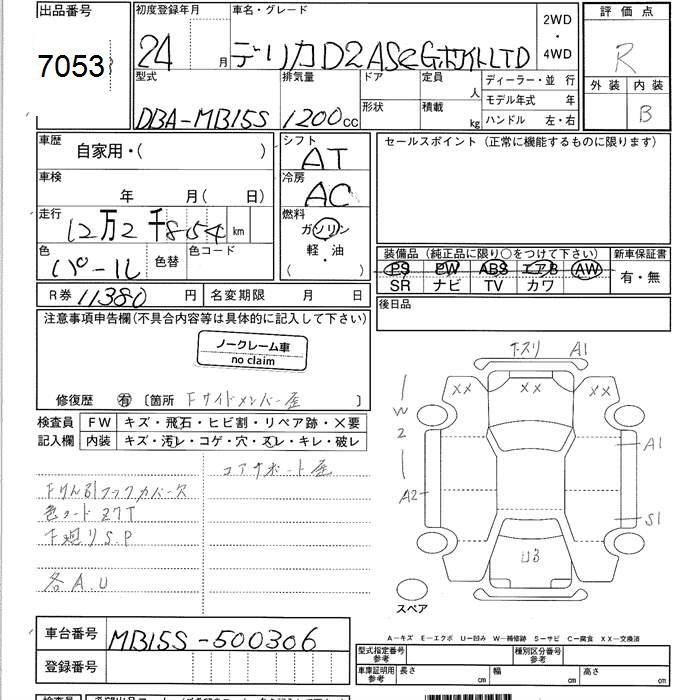 出品番号
7053
初度登録年月
24 月
車名・グレード
デリカD2 ASe Gホワイト LTD
2WD
・
4WD
評価点
R
型式
DBA-MB15S
排気量
1200cc
ドア
定員 人
形状
積載 kg
ディーラー・並 行
モデル年式 年
ハンドル 左・右
外装 内装
B
車歴
自家用・( )
シフト
AT
セールスポイント (正常に機能するものに限ります)
車検
年 月( 日)
冷房
AC
走行
12万2千854km
燃料
ガソリン
軽・油
( )
色
パール
色替
色コード
装備品 (純正品に限り○をつけて下さい)
新車保証書
PS PW ABS エアB AW
SR ナビ TV カワ
有・無
R券 11380 円
名変期限 月 日
後日品
注意事項申告欄(不具合内容等は具体的に記入して下さい)
ノークレーム車
no claim
修復歴 有 〔箇所 Fサイドメンバー歪 〕
検査員
記入欄
FW キズ・飛石・ヒビ割・リペア跡・X要
内装 キズ・汚レ・コゲ・穴・スレ・キレ・破レ
コアサポート歪
Fけん引フックカバー欠
色コード Z7T
下廻りS.P
各A.U
A1
XX XX XX
W
2
A1
A2
S1
U3
スペア
車台番号 MB15S-500306
登録番号
A―キズ E―エクボ U―凹み W―補修跡 S―サビ C―腐食 XX―交換済
型式指定番号
参考
種別区分番号
参考
車庫証明用
参考
長さ cm
幅 cm
高さ cm